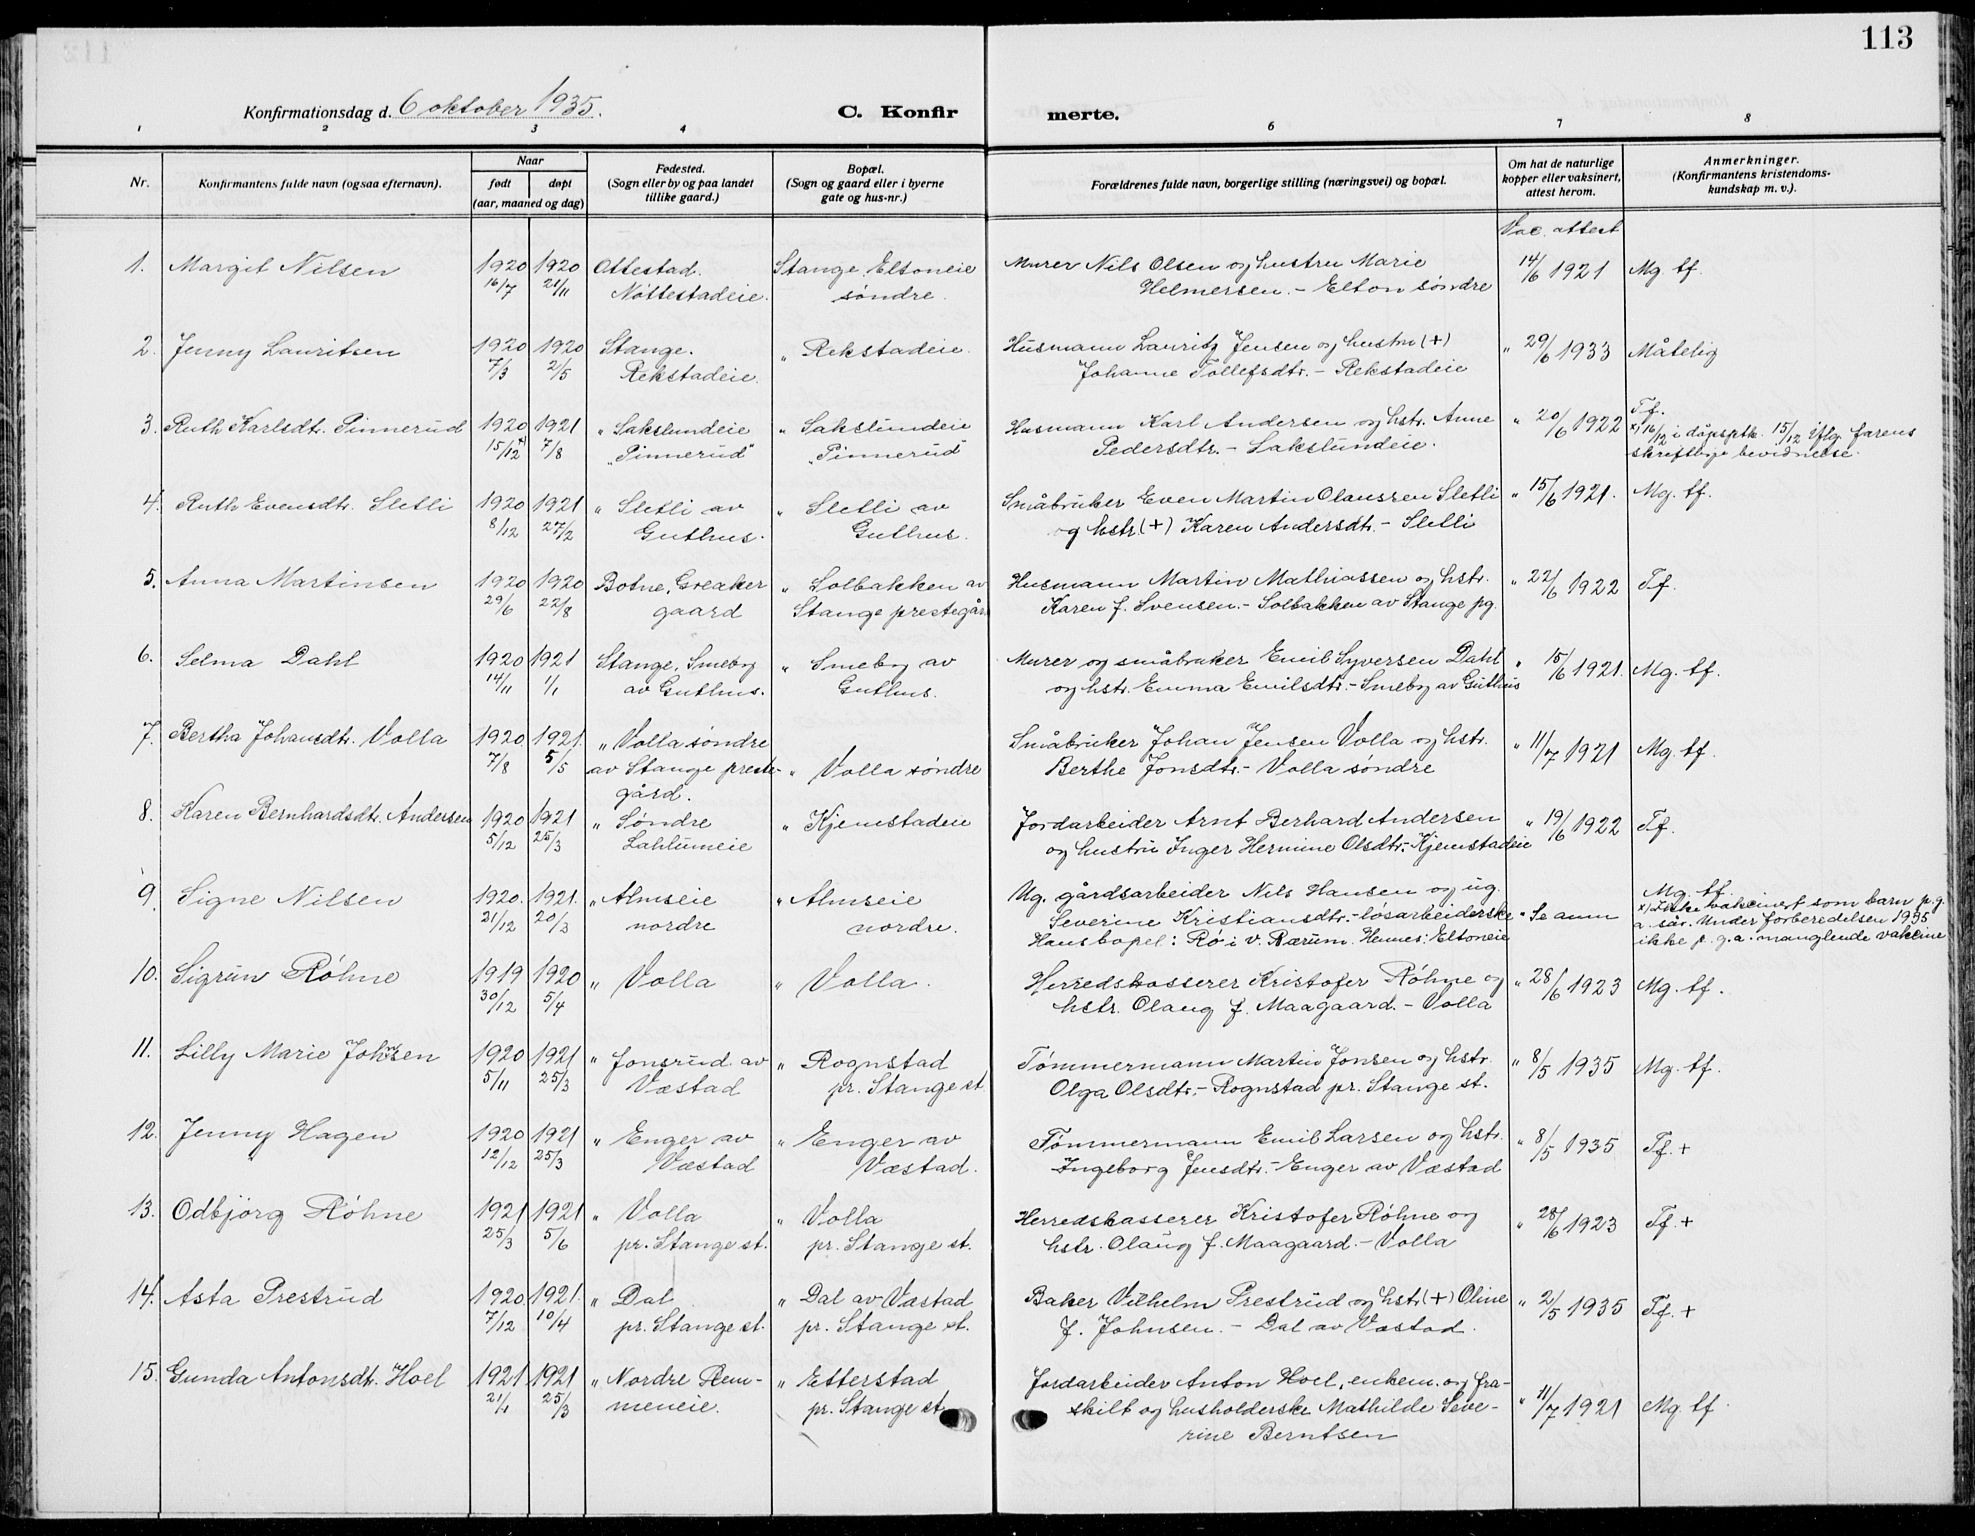 113
Konfirmationsdag d. 6 oktober 1935.
C. Konfirmerte.
1 2 3 4 6 7 8
Nr.
Konfirmantens fulde navn (ogsaa efternavn).
Naar
født døpt
(aar, maaned og dag)
Fødested.
(Sogn eller by og paa landet
tillike gaard.)
Bopæl.
(Sogn og gaard eller i byerne
gate og hus-nr.)
Forældrenes fulde navn, borgerlige stilling (næringsvei) og bopæl.
Om hat de naturlige
kopper eller vaksinert,
attest herom.
Anmerkninger.
(Konfirmantens kristendoms-
kundskap m. v.).
Vac. attest
1. Margit Nilsen 1920 1920 Ottestad. Stange, Eltoneie Murer Nils Olsen og hustru Marie 14/6 1921 Mg. tf.
16/7 21/11 Nøttestadeie. søndre. Helmersen. - Elton søndre
2. Jenny Lauritsen 1920 1920 Stange. " Rekstadeie. Husmann Lauritz Jensen og hustru (+) " 29/6 1933 Måtelig
7/3 2/5 Rekstadeie. Johanne Tollefsdtr. - Rekstadeie
3. Ruth Karlsdtr. Pinnerud 1920 1921 " Sakslundeie " Sakslundeie Husmann Karl Andersen og hstr. Anne " 20/6 1922 Tf.
15/12 x) 7/8 "Pinnerud" "Pinnerud" Pedersdtr. - Sakslundeie. x) 16/12 i dåpsptk. 15/12 iflg. farens
skriftlige bevidnelse.
4. Ruth Evensdtr. Sletli 1920 1921 " Sletli av " Sletli av Småbruker Even Martin Olaussen Sletli " 15/6 1921. Mg. tf.
8/12 27/2 Guthus. Guthus. og hstr. (+) Karen Andersdtr. - Sletli
5. Anna Martinsen 1920 1920 Botne, Greaker " Solbakken av Husmann Martin Mathiassen og hstr. " 22/6 1922 Tf.
29/6 22/8 gaard Stange prestegår Karen f. Svensen. - Solbakken av Stange pg.
6. Selma Dahl 1920 1921 Stange, Smeby " Smeby av Murer og småbruker Emil Syversen Dahl " 15/6 1921. Mg. tf.
14/11 1/1 av Guthus. Guthus. og hstr. Emma Emilsdtr. - Smeby av Guthus
7. Bertha Johansdtr. Volla 1920 1921. " Volla søndre Småbruker Johan Jensen Volla og hstr. " 11/7 1921 Mg. tf.
7/8 5/5 av Stange preste- " Volla søndre Berthe Jonsdtr. - Volla søndre
gård.
8. Karen Bernhardsdtr. Andersen 1920 1921 " Søndre " Kjemstadeie Jordarbeider Arnt Berhard Andersen " 19/6 1922 Tf.
5/12 25/3 Lahlumeie og hustru Inger Hermine Olsdtr. - Kjemstadeie
9. Signe Nilsen 1920. 1921. " Almseie " Almseie Ug. gårdsarbeider Nils Hansen og ug. Mg. tf.
21/12 20/3 nordre nordre. Severine Kristiansdtr. - løsarbeiderske " Se anm x) Ikke vaksinert som barn p.g.
Hans bopel: Rø i V. Bærum. Hennes: Eltoneie a. sår. Under forberedelsen 1935
ikke p.g.a. manglende vaksine
10. Sigrun Røhne 1919 1920 " Volla " Volla. Herredskasserer Kristofer Røhne og " 28/6 1923 Mg. tf.
30/12 5/4 hstr. Olaug f. Maagaard. - Volla
11. Lilly Marie Johnsen 1920 1921 " Jonsrud av " Rognstad Tømmermann Martin Jonsen og hstr. " 8/5 1935 Mg. tf.
5/11 25/3 Væstad pr. Stange st. Olga Olsdtr. - Rognstad pr. Stange st.
12. Jenny Hagen 1920 1921 " Enger av " Enger av Tømmermann Emil Larsen og hstr. " 8/5 1935 Tf. +
12/12 25/3 Væstad Væstad. Ingeborg Jensdtr. - Enger av Væstad
13. Odbjörg Røhne 1921 1921 " Volla " Volla Herredskasserer Kristofer Røhne og " 28/6 1923 Tf. +
25/3 5/6 pr. Stange st. pr. Stange st. hstr. Olaug f. Maagaard. - Volla
14. Asta Prestrud 1920. 1921. " Dal " Dal av Væstad Baker Vilhelm Prestrud og hstr. (+) Oline " 2/5 1935 Tf. +
7/12 10/4 pr. Stange st. pr. Stange st. f. Johnsen. - Dal av Væstad.
15. Gunda Antonsdtr. Hoel 1921 1921 " Nordre Rem- " Etterstad Jordarbeider Anton Hoel, enkem. og fra- " 11/7 1921 Mg. tf.
21/1 25/3 meneie. pr. Stange st. skilt og husholderske Mathilde Seve-
rine Berntsen